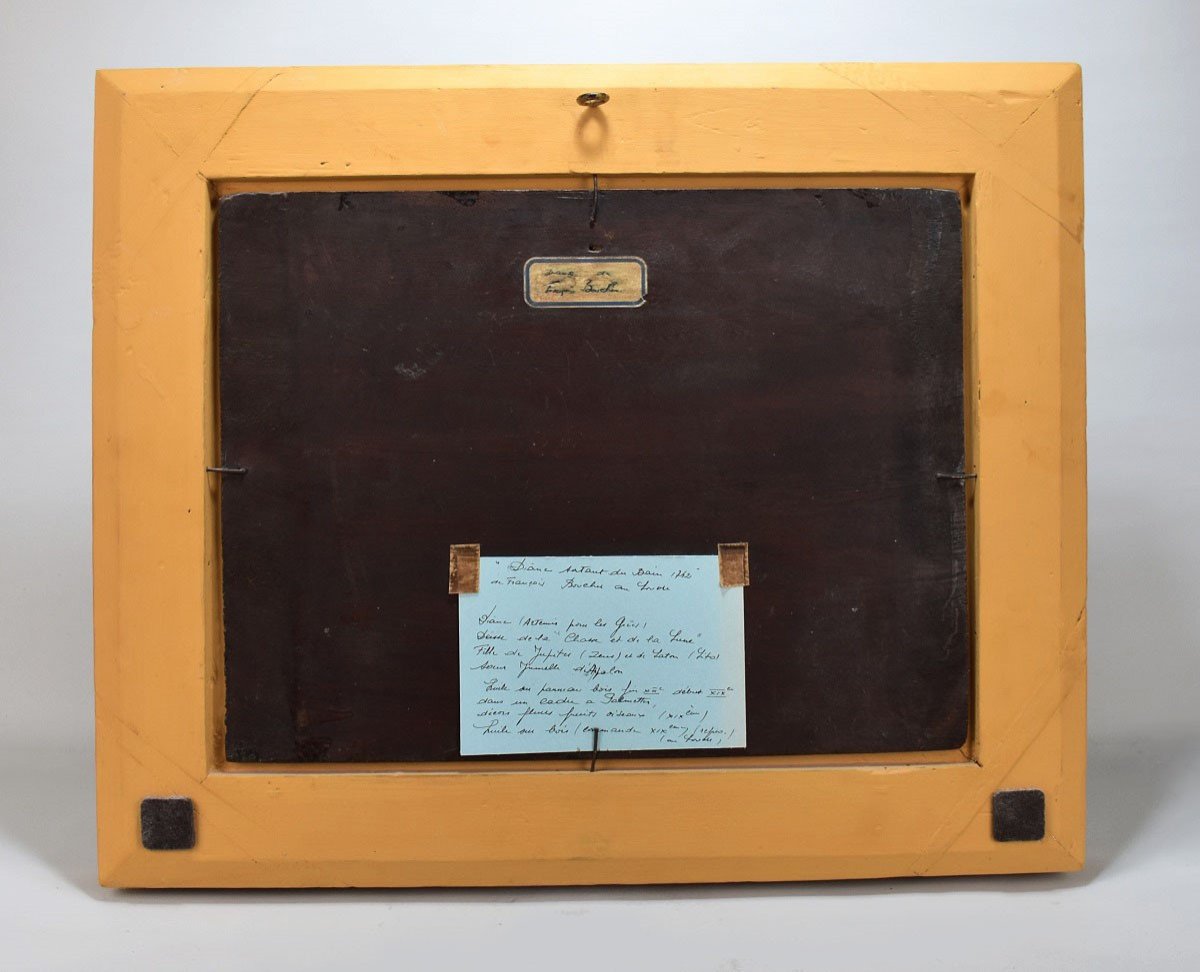 Diane de
François Boucher
" Diane sortant du Bain 1742"
de François Boucher au Louvre
Diane (Artémis pour les Grecs)
Déesse de la "Chasse et de la Lune"
Fille de Jupiter (Zeus) et de Laton (Léto)
Soeur Jumelle d'Apolon
Huile sur panneau bois fin début XIXe
dans un cadre a Palmettes,
décors fleurs fruits oiseaux (XIXème)
Huile sur bois (commande XIXème)
au Louvre)